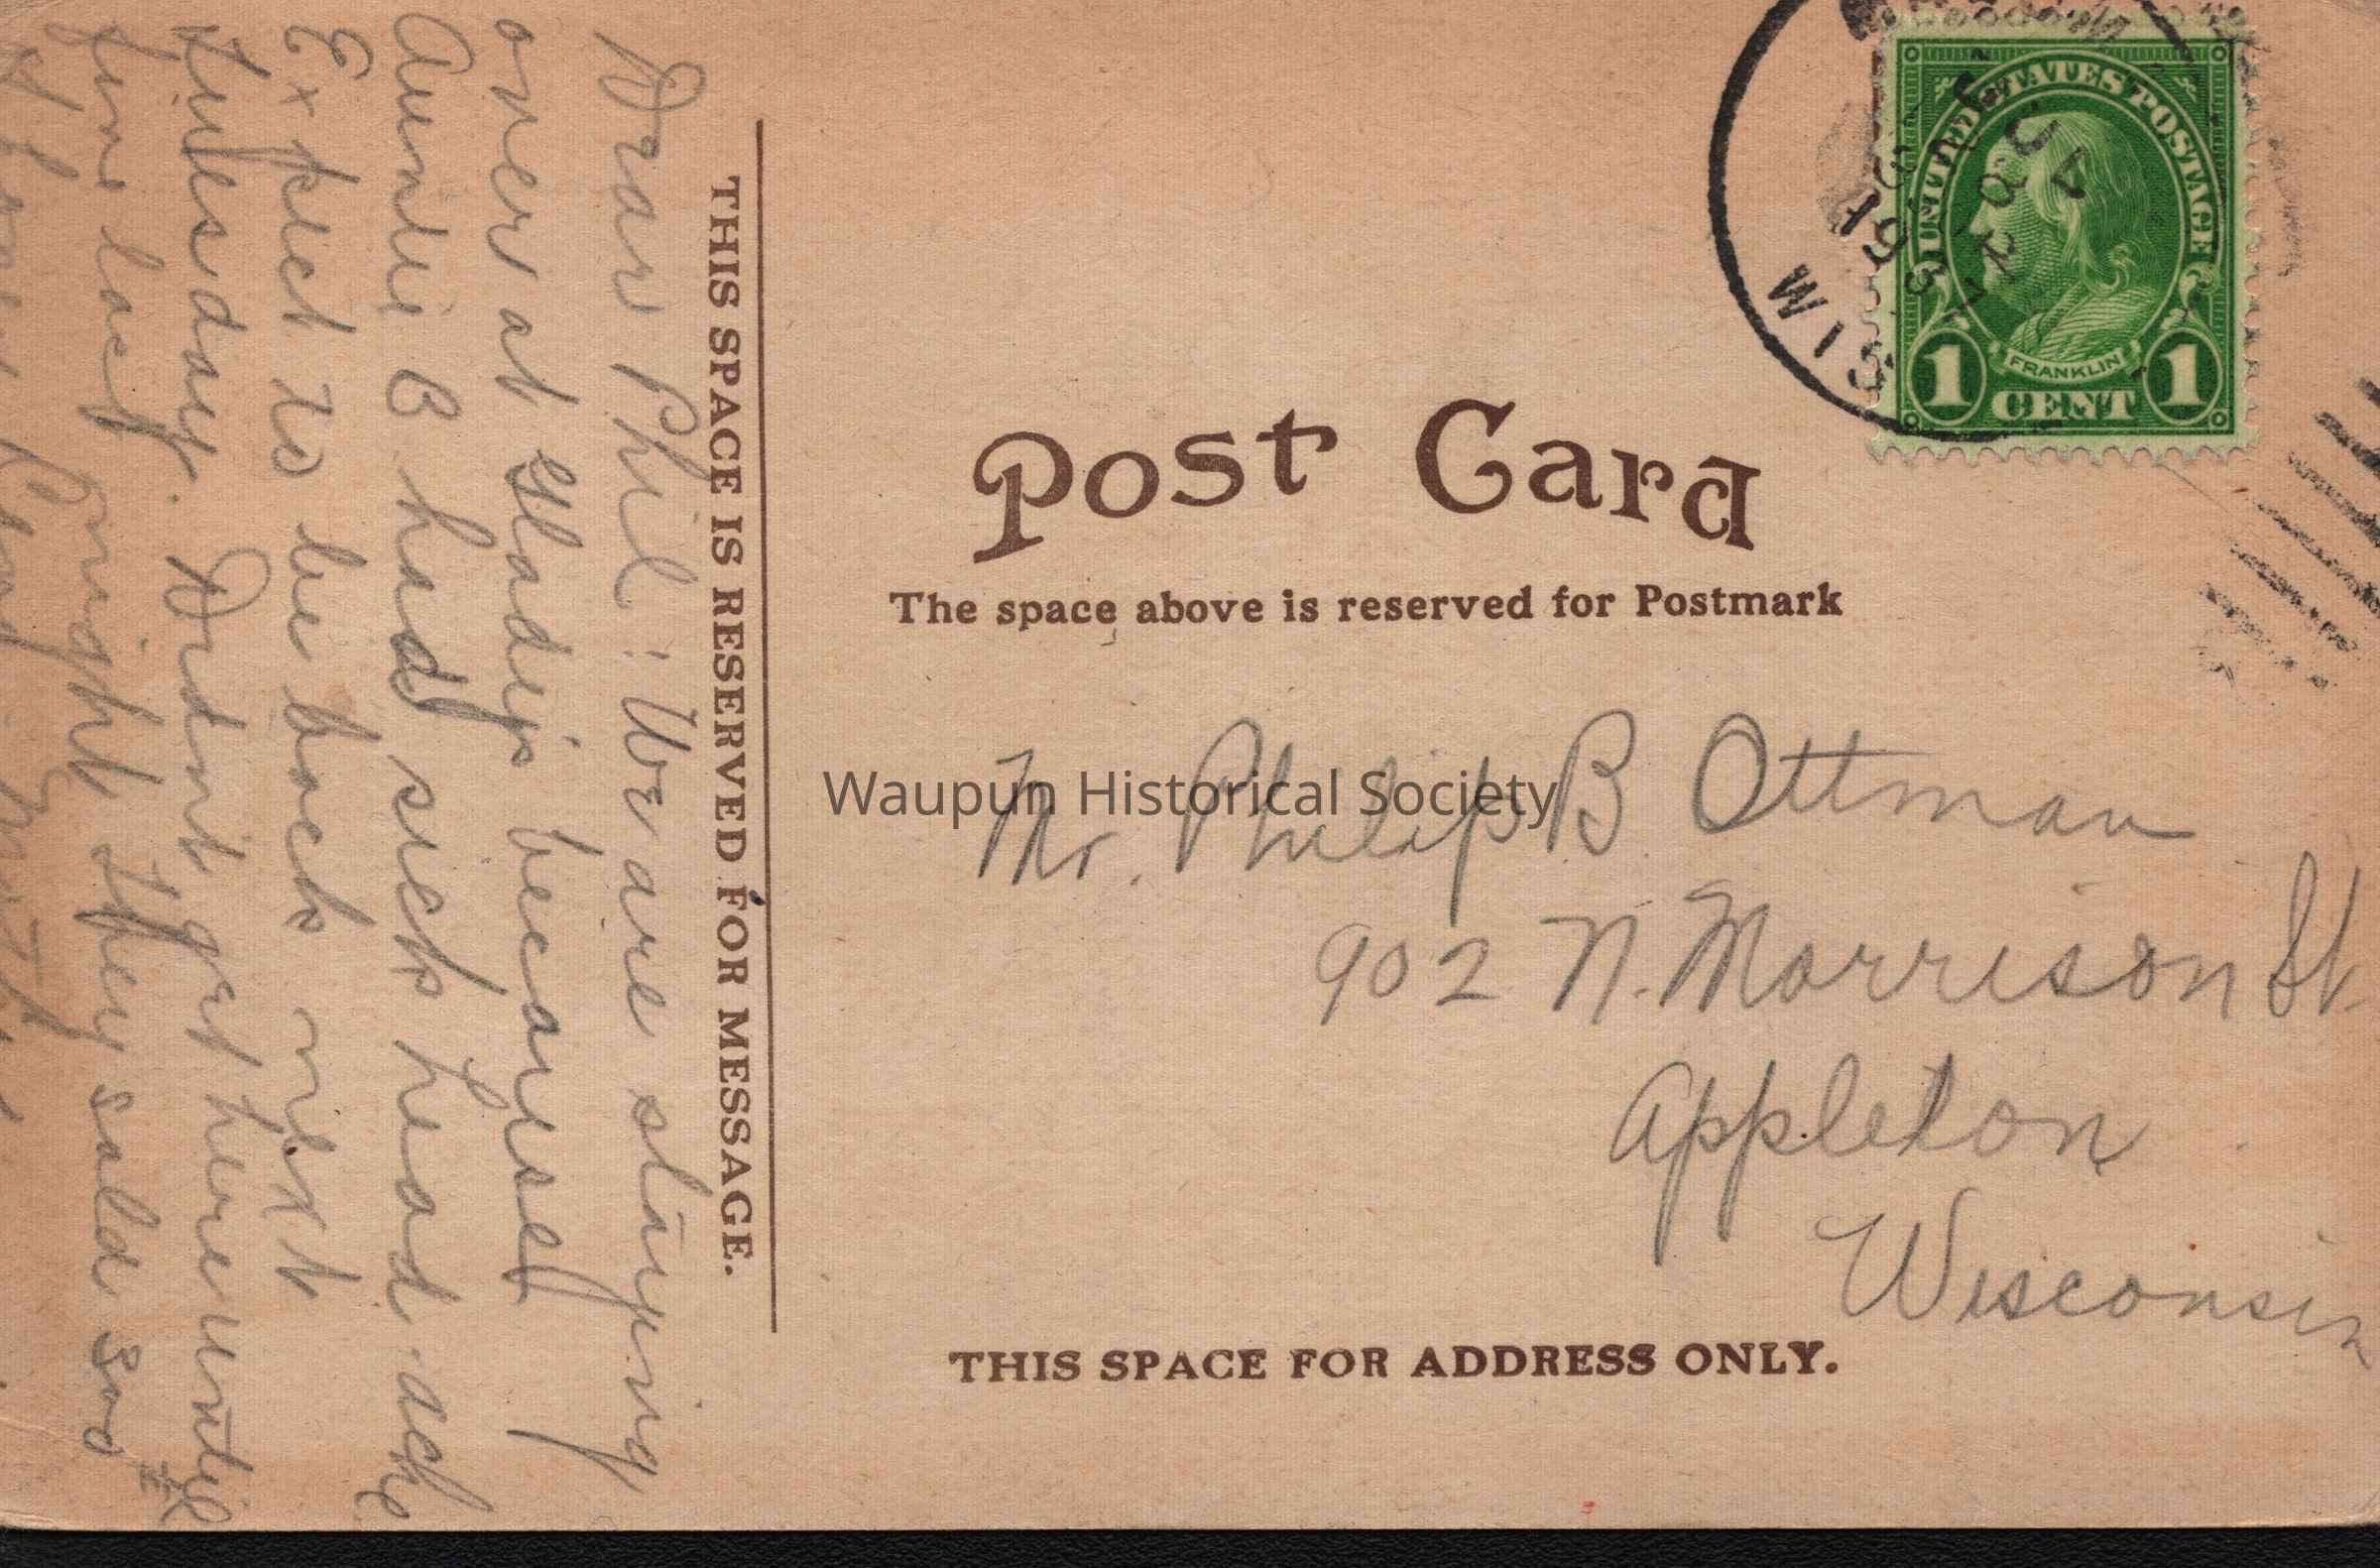 UNITED STATES POSTAGE
FRANKLIN
1 CENT 1
WIS
Post Card
The space above is reserved for Postmark
Mr. Philip B Ottman
902 N. Morrison St.
Appleton
Wisconsin
THIS SPACE FOR ADDRESS ONLY.
THIS SPACE IS RESERVED FOR MESSAGE.
Dear Phil: We are staying
over at Gladys because
Auntie B had sick head ache
Expect to be back next
Tuesday. Didnt get here until
five last night They sold 2nd
Waupun Historical Society